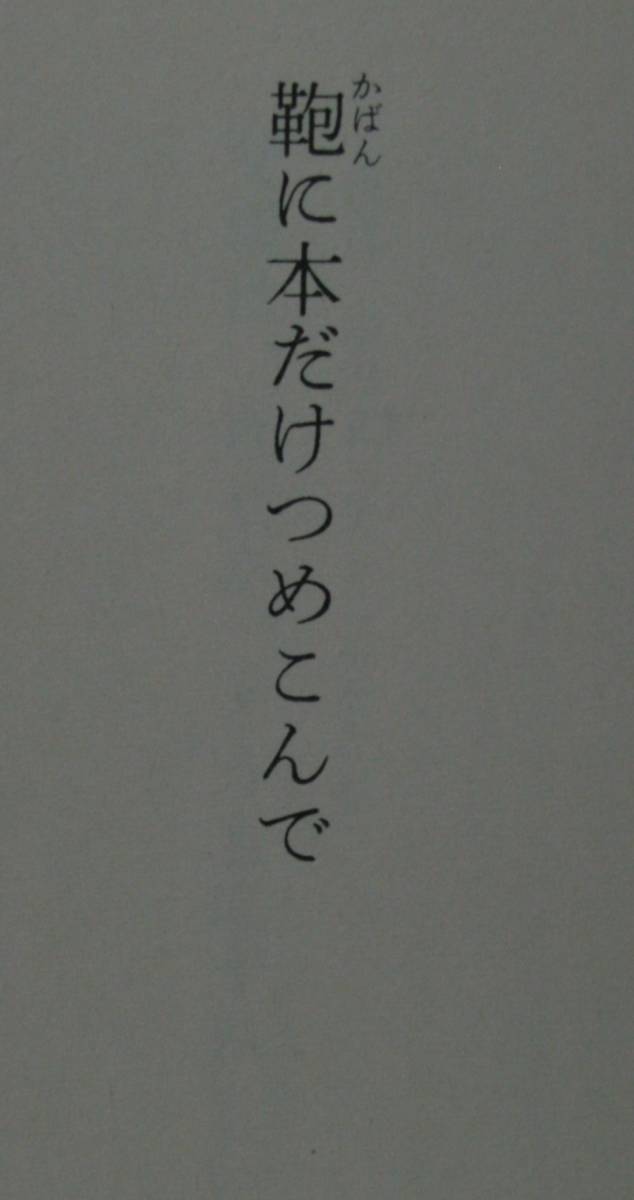 鞄に本だけつめこんで
かばん